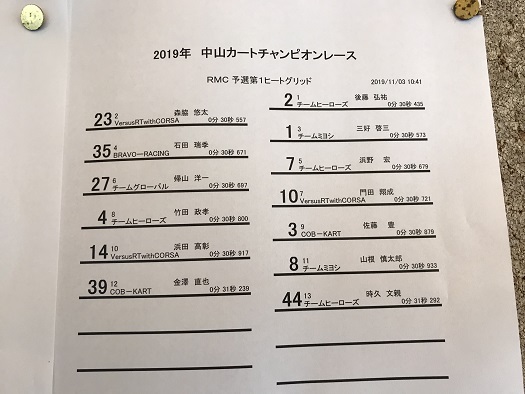 2019年 中山カートチャンピオンレース
RMC 予選第1ヒートグリッド
2019/11/03 10:41
2 1 後藤 弘祐
チームヒーローズ 0分 30秒 435
23 2 森脇 悠太
VersusRTwithCORSA 0分 30秒 557
1 3 三好 啓三
チームミヨシ 0分 30秒 573
35 4 石田 瑞季
BRAVO－RACING 0分 30秒 671
7 5 浜野 宏
チームヒーローズ 0分 30秒 679
27 6 帰山 洋一
チームグローバル 0分 30秒 697
10 7 門田 翔成
VersusRTwithCORSA 0分 30秒 721
4 8 竹田 政孝
チームヒーローズ 0分 30秒 800
3 9 佐藤 豊
COB－KART 0分 30秒 879
14 10 浜田 高彰
VersusRTwithCORSA 0分 30秒 917
8 11 山根 慎太郎
チームミヨシ 0分 30秒 933
39 12 金澤 直也
COB－KART 0分 31秒 239
44 13 時久 文親
チームヒーローズ 0分 31秒 292